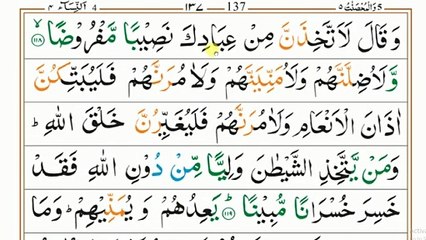 5 وَالْمُحْصَنٰتُ ٥ ١٣٧ 137 النِّسَآء ٤ 4
وَقَالَ لَاَتَّخِذَنَّ مِنْ عِبَادِكَ نَصِيْبًا مَّفْرُوْضًا ۙ ﴿١١٨﴾
وَّلَاُضِلَّنَّهُمْ وَلَاُمَنِّيَنَّهُمْ وَلَاٰمُرَنَّهُمْ فَلَيُبَتِّكُنَّ
اٰذَانَ الْاَنْعَامِ وَلَاٰمُرَنَّهُمْ فَلَيُغَيِّرُنَّ خَلْقَ اللّٰهِ ؕ
وَمَنْ يَّتَّخِذِ الشَّيْطٰنَ وَلِيًّا مِّنْ دُوْنِ اللّٰهِ فَقَدْ
خَسِرَ خُسْرَانًا مُّبِيْنًا ؕ ﴿١١٩﴾ يَعِدُهُمْ وَ يُمَنِّيْهِمْ ؕ وَمَا